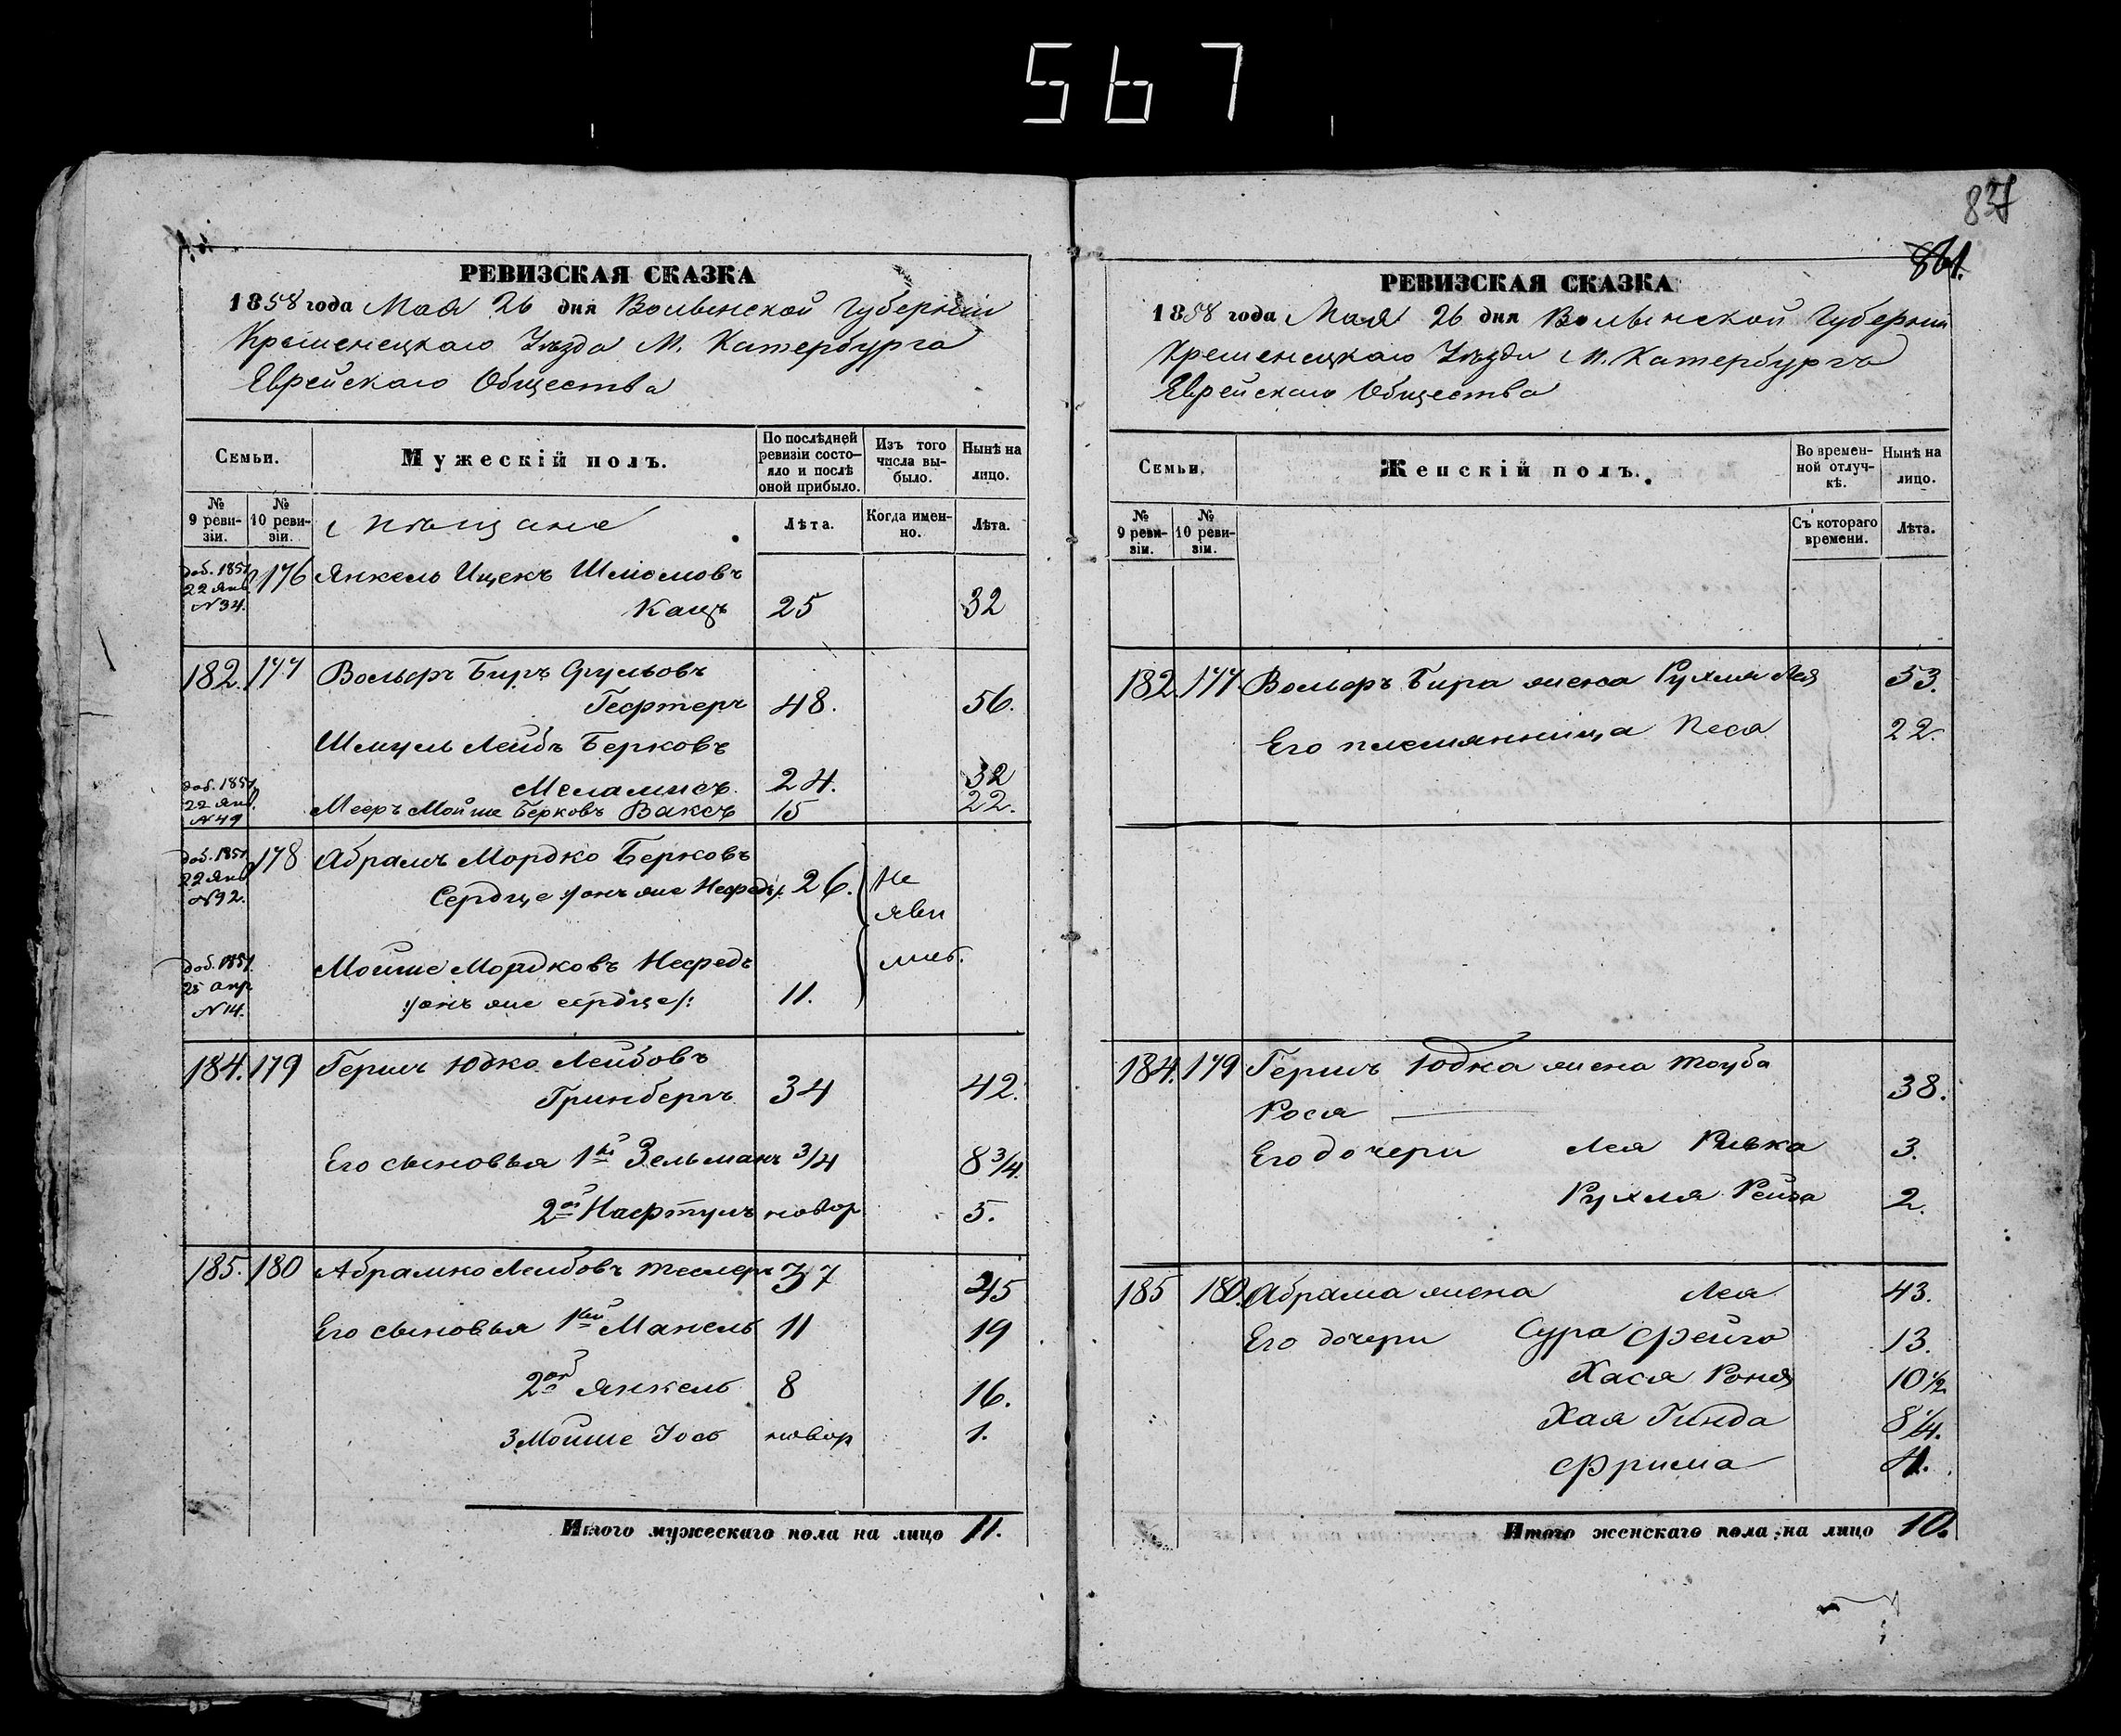 567
837
861.
РЕВИЗСКАЯ СКАЗКА
1858 года Мая 26 дня Волынской Губерніи
Кременецкаго Уѣзда М. Катербурга
Еврейскаго Общества
Семьи.
Мужескій полъ.
По послѣдней ревизіи состояло и послѣ оной прибыло.
Изъ того числа выбыло.
Нынѣ на лицо.
№ 9 ревизіи.
№ 10 ревизіи.
Мѣщане
Лѣта.
Когда именно.
Лѣта.
доб. 1851 22 Янв N 34. 176 Янкель Ицекъ Шлiомовъ
Кацъ 25 32
182. 177 Вольфъ Биръ Срульовъ
Гефтеръ 48. 56.
Шмуль Лейбъ Берковъ
Меламисъ 24. 32
доб. 1851 22 Янв. N 49 Мееръ Мойше Берковъ Ваксъ 15 22.
доб. 1851 22 Янв N 92. 178 Абрамъ Мордко Берковъ
Сердце /онъ же Нефедъ/: 26. Не
яви
лись.
доб. 1851. 25 Апр N 14. Мойше Мордковъ Нефедъ
:/онъ же сердце/: 11.
184. 179 Гершъ Юдко Лейбовъ
Гринбергъ 34 42.
Его сыновья 1й Зельманъ 3/4 8 3/4.
2ой Нафтулъ новор 5.
185. 180 Абрамко Лейбовъ Теслеръ 37 45
Его сыновья 1ый Манель 11 19
2ой Янкель 8 16.
3 Мойше Iось новор 1.
Итого мужескаго пола на лицо 11.
РЕВИЗСКАЯ СКАЗКА
1858 года Мая 26 дня Волынской Губерніи
Кременецкаго Уѣзда М. Катербургъ
Еврейскаго Общества
Семьи.
Женскій полъ.
Во временной отлучкѣ.
Нынѣ на лицо.
№ 9 ревизіи.
№ 10 ревизіи.
Съ котораго времени.
Лѣта.
182 177 Вольфъ Бира жена Рухля Лея 53.
Его племянница Песя 22.
184. 179 Гершъ Юдка жена Тауба
Рося 38.
Его дочери Лея Ривка 3.
Рухля Рейза 2.
185 180. Абрама жена Лея 43.
Его дочери Сура Фейга 13.
Хася Роня 10 1/2.
Хая Гинда 8 1/4.
Фрима 4.
Итого женскаго пола на лицо 10.